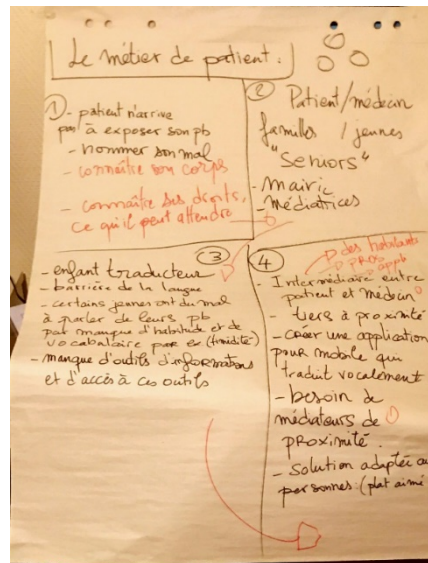 Le métier de patient :
① - patient n'arrive
pas à exposer son pb
- nommer son mal
- connaître son corps
- connaître ses droits,
ce qu'il peut attendre
② Patient/médecin
familles / jeunes
"Seniors"
- Mairie
- Médiatrices
③
- enfant traducteur
- barrière de la langue
- certains jeunes ont du mal
à parler de leurs pb
par manque d'habitude et de
vocabulaire par ex (timidité)
- manque d'outils d'informations
et d'accès à ces outils
④
des habitants
PROS
appli
- Intermédiaire entre
patient et médecin
- tiers à proximité
- créer une application
pour mobile qui
traduit vocalement
- besoin de
médiateurs de
PROXIMITÉ.
- solution adaptée au
personnes : (plat aimé